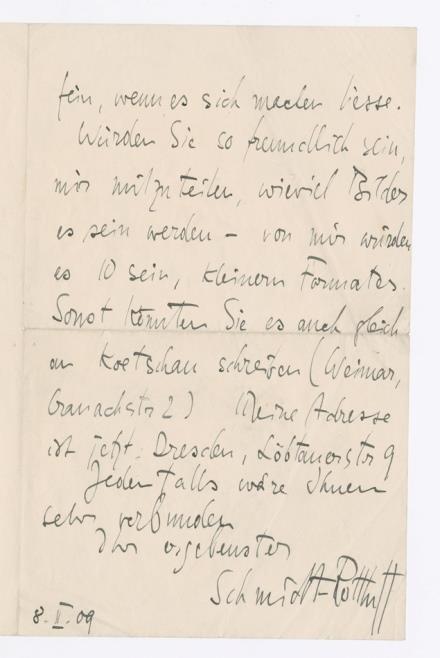 fein, wenn es sich machen liesse.
Würden Sie so freundlich sein,
mir mitzuteilen, wieviel Bilder
es sein werden – von mir würden
es 10 sein, kleinern Formates.
Sonst könnten Sie es auch gleich
an Koetschau schreiben (Weimar,
Cranachstr 2) Meine Adresse
ist jetzt: Dresden, Löbtauerstr 9
Jedenfalls wäre Ihnen
sehr verbunden
Ihr ergebenster
Schmidt-Rottluff
8. II. 09